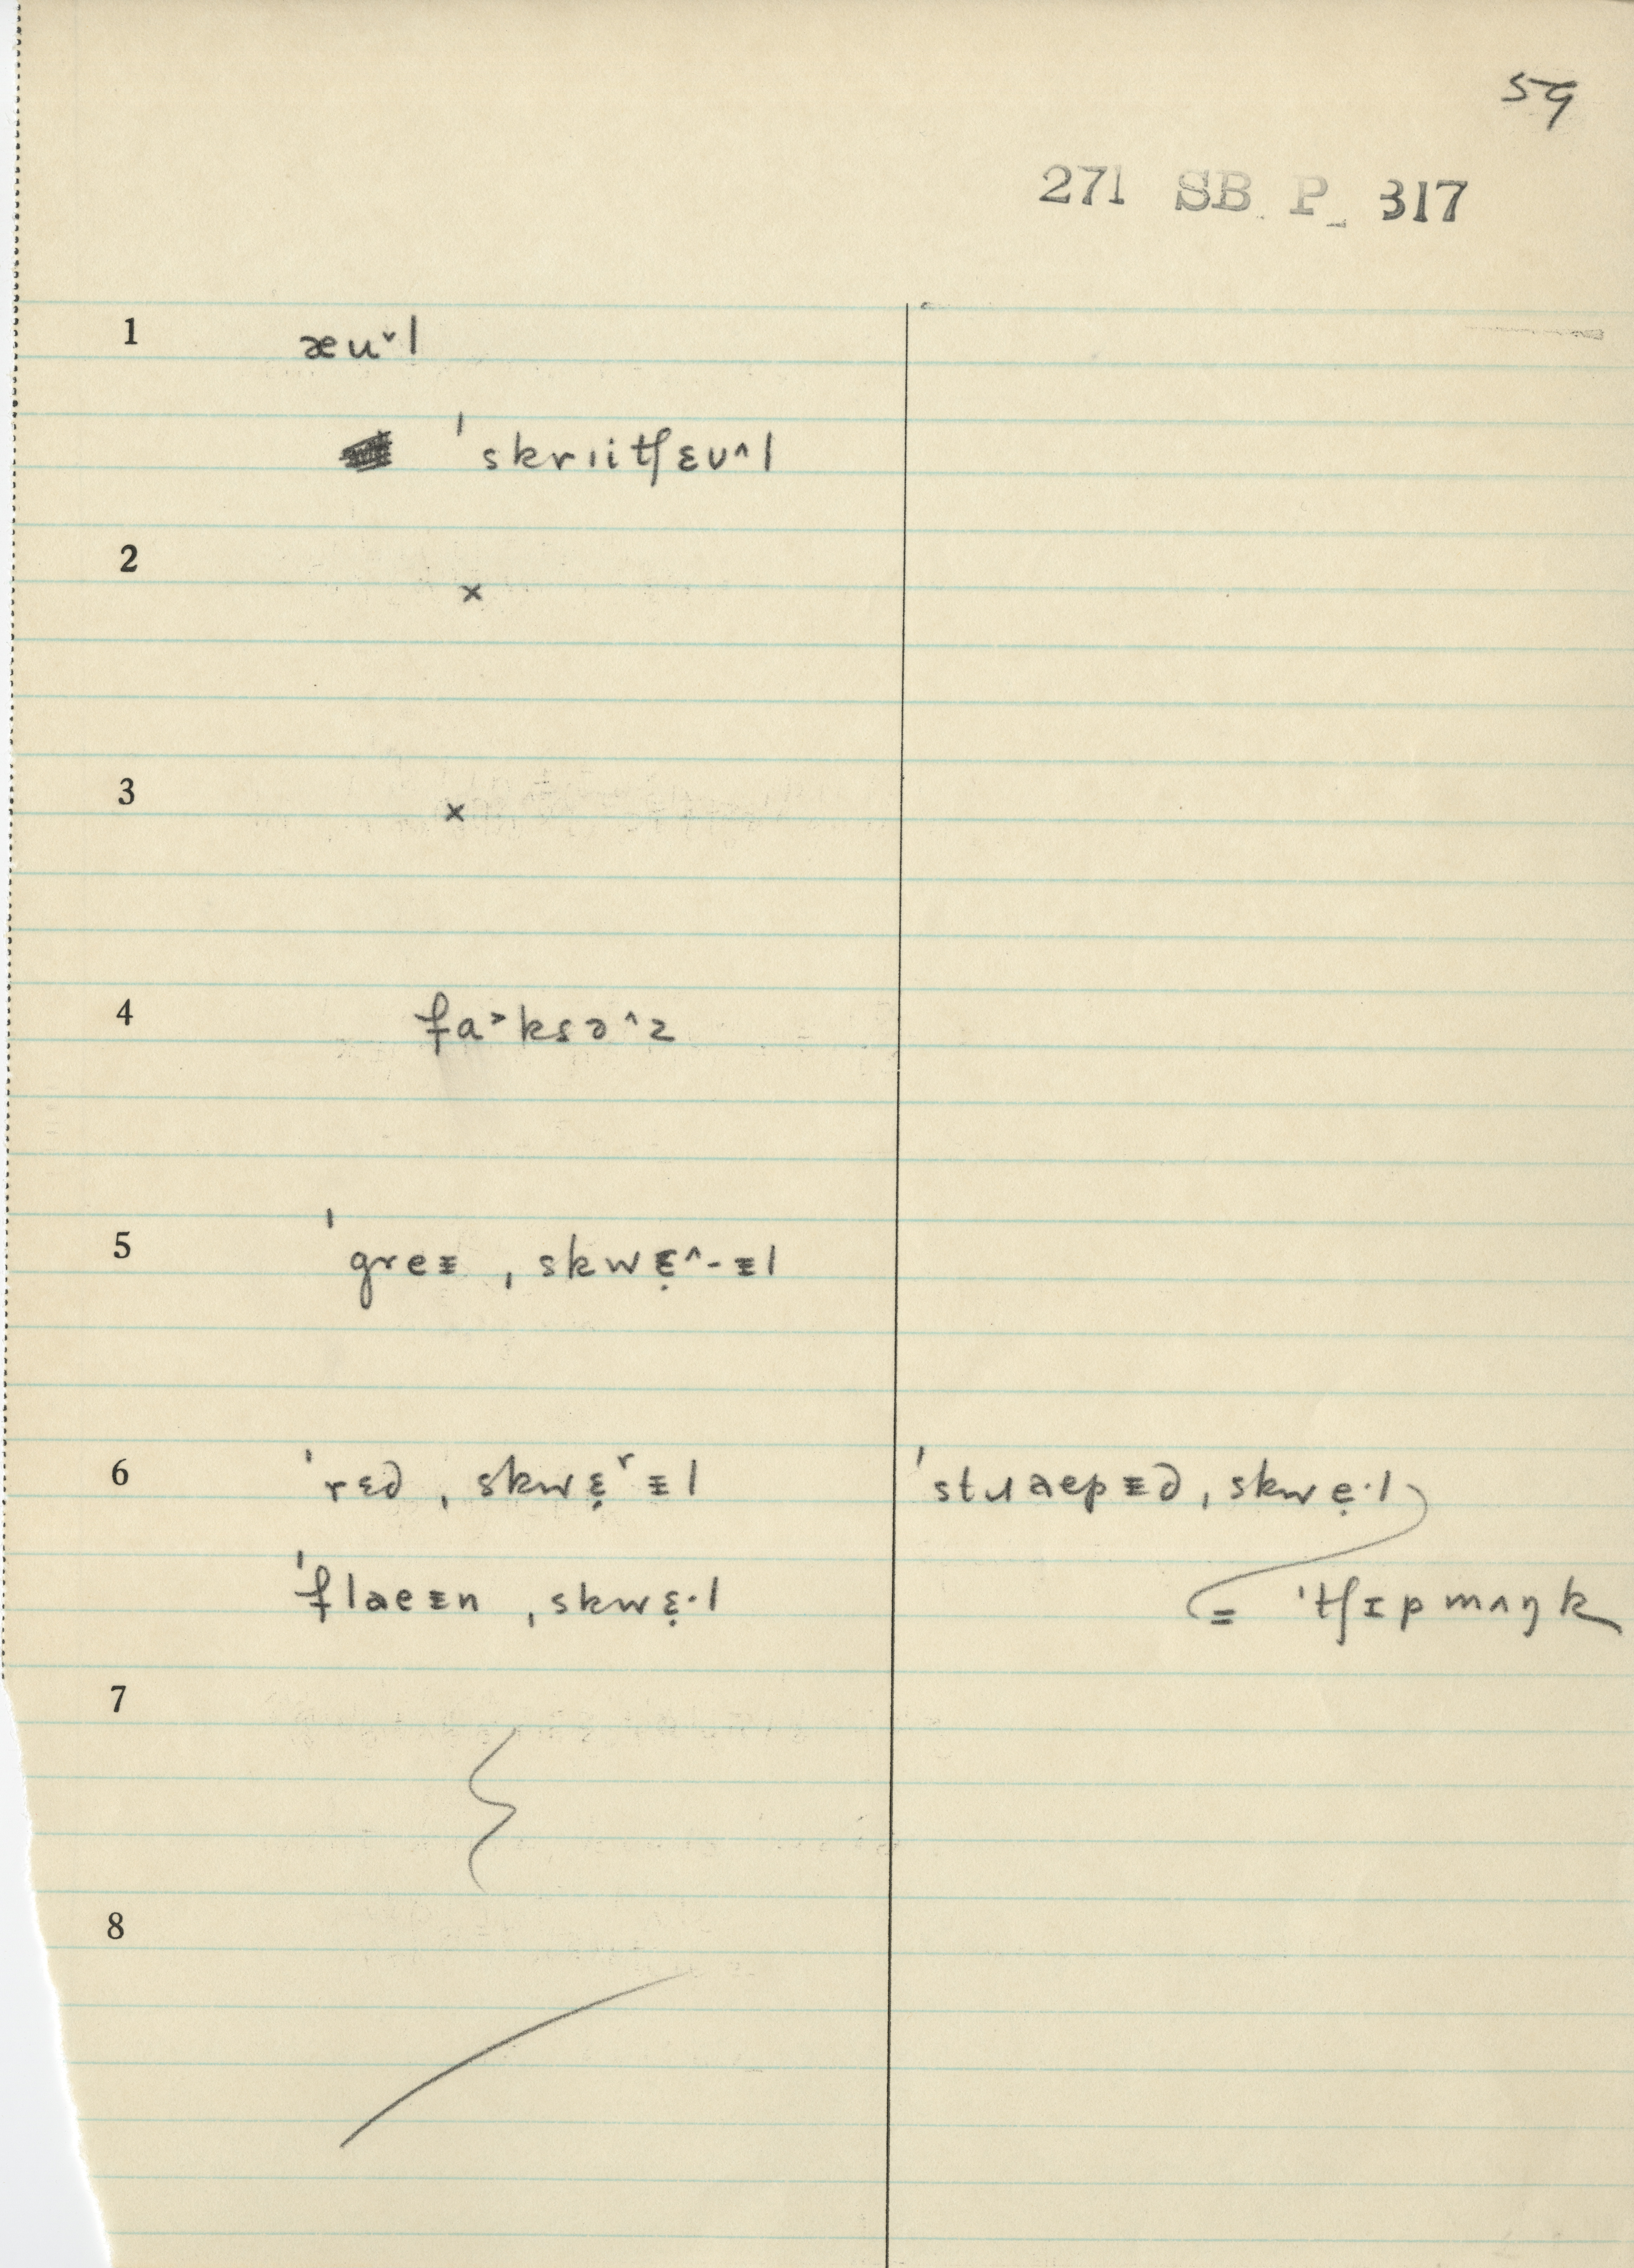 59
271 SB P 317
1 æu˅l
ˈskrıitʃɛʊ^l
2 ×
3 ×
4 fa˃ksə^z
5 ˈgreᵻ ˌskwɛ̣^-ᵻl
6 ˈrɛd ˌskwɛ̣ʳᵻl ˈstɹaepᵻd ˌskwẹ·l
ˈflaeᵻn ˌskwɛ̣·l = ˈtʃɪpmʌŋk
7
8